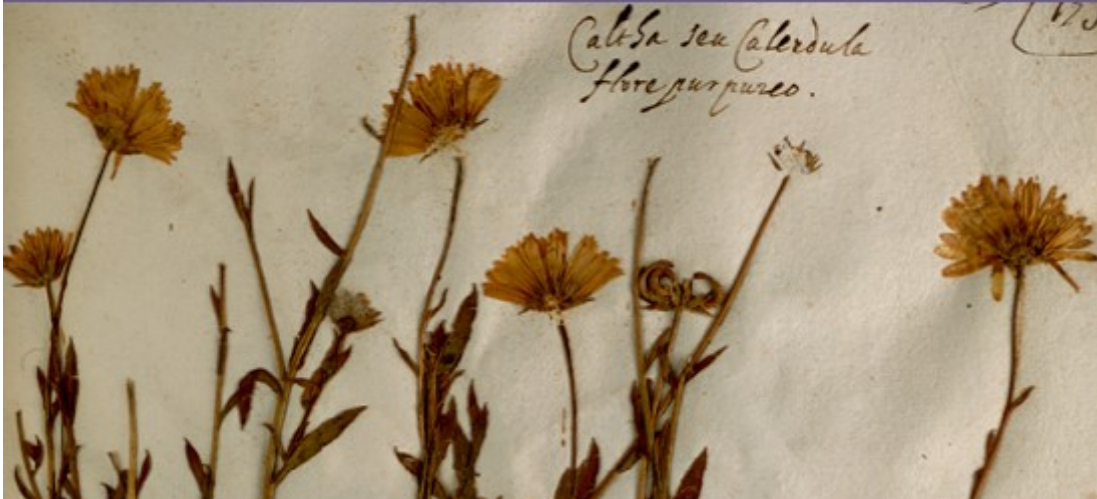 Caltha seu Calendula
flore purpureo.